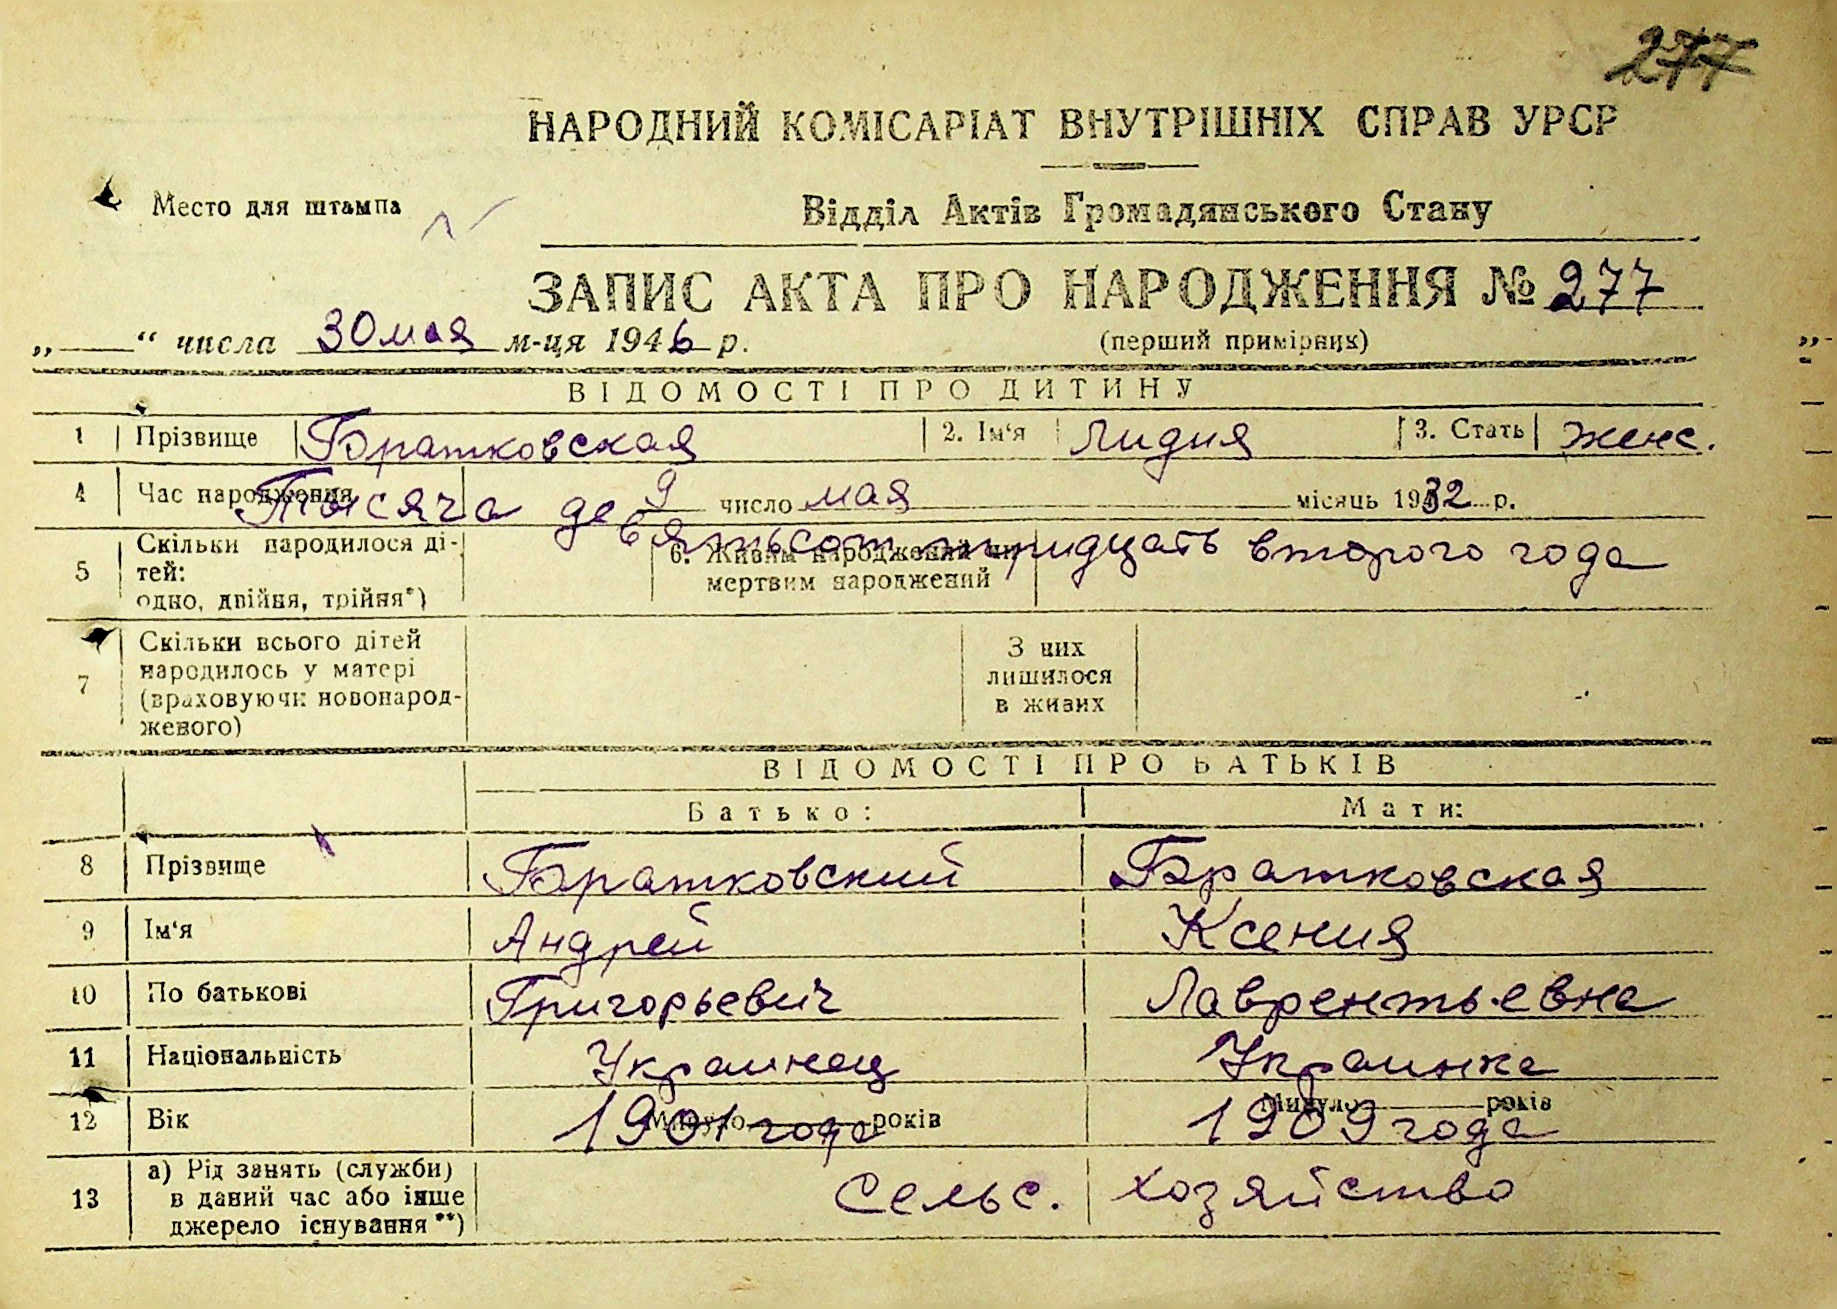 277
НАРОДНИЙ КОМІСАРІАТ ВНУТРІШНІХ СПРАВ УРСР
Место для штампа
Відділ Актів Громадянського Стану
ЗАПИС АКТА ПРО НАРОДЖЕННЯ № 277
„ “ числа 30 мая м-ця 1946 р.
(перший примірник)
ВІДОМОСТІ ПРО ДИТИНУ
1 Прізвище Братковская 2. Ім‘я Лидия 3. Стать женс.
4 Час народження 9 число мая місяць 1932 р.
Тысяча девятьсот тридцать второго года
5 Скільки народилося ді-
тей:
одно, двійня, трійня*)
6. Живим народжений чи
мертвим народжений
7 Скільки всього дітей
народилось у матері
(враховуючи новонарод-
женого)
З них
лишилося
в живих
ВІДОМОСТІ ПРО БАТЬКІВ
Батько: Мати:
8 Прізвище Братковский Братковская
9 Ім‘я Андрей Ксения
10 По батькові Григорьевич Лаврентьевна
11 Національність Украинец Украинка
12 Вік Минуло років Минуло років
1901 года 1909 года
13 а) Рід занять (служби)
в даний час або інше
джерело існування**)
Сельс. хозяйство